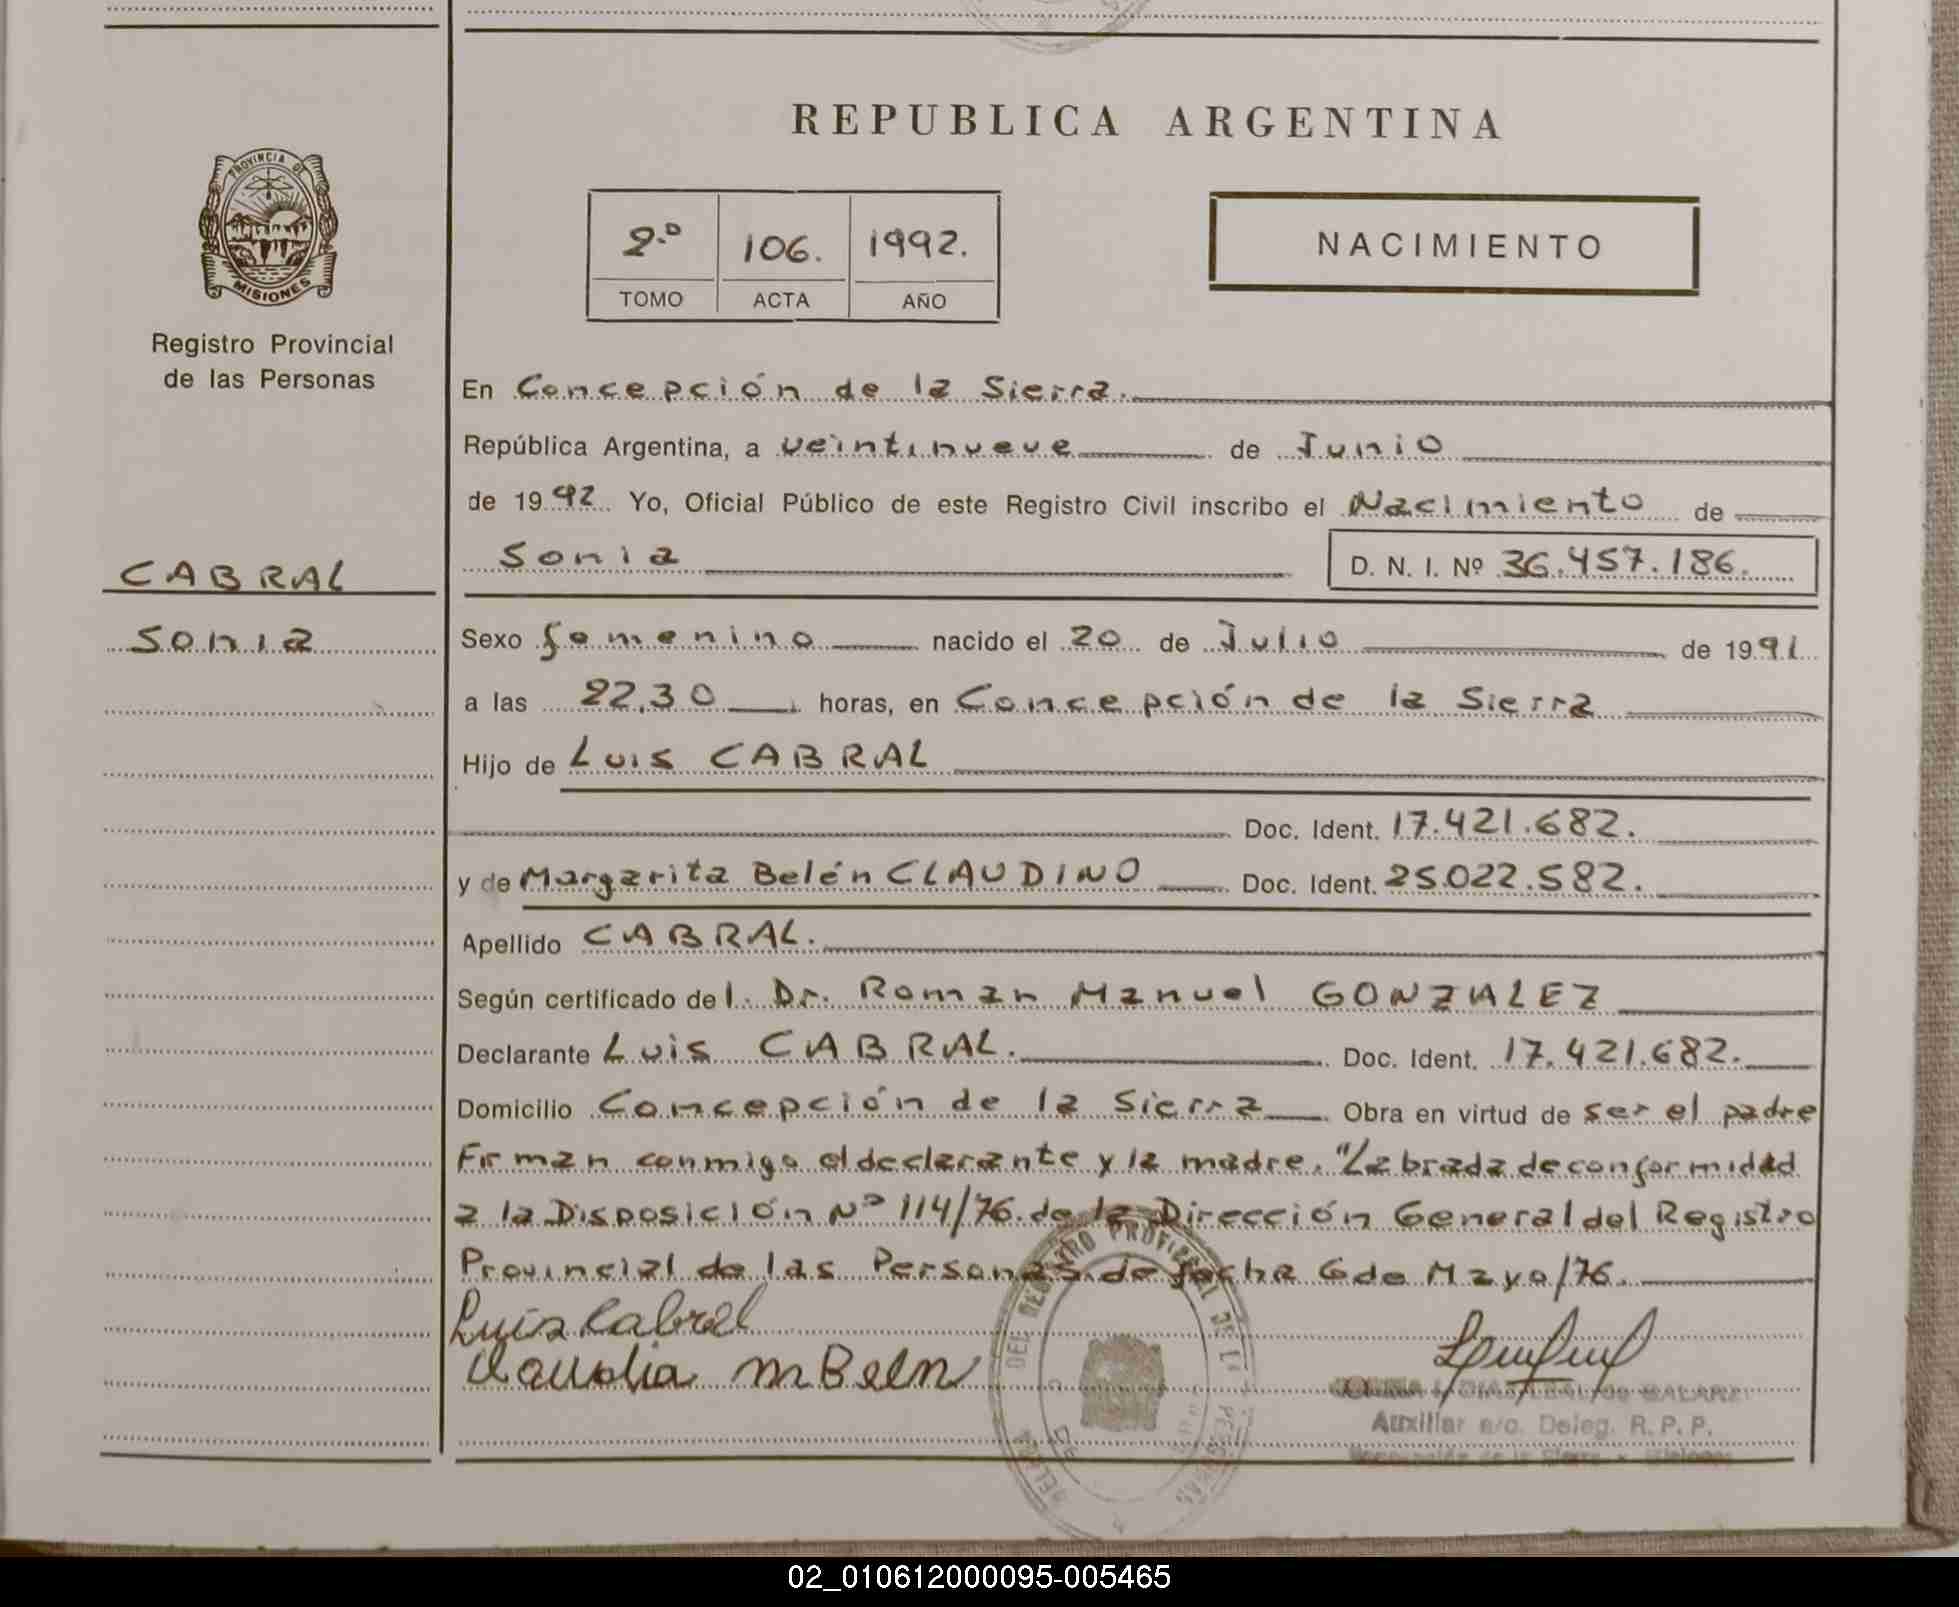 REPUBLICA ARGENTINA
PROVINCIA DE
MISIONES
Registro Provincial
de las Personas
2.º 106. 1992.
TOMO ACTA AÑO
NACIMIENTO
CABRAL
Sonia
En Concepción de la Sierra.
República Argentina, a veintinueve de Junio
de 1992 Yo, Oficial Público de este Registro Civil inscribo el Nacimiento de
Sonia D. N. I. Nº 36.457.186.
Sexo femenino nacido el 20 de Julio de 1991
a las 22.30 horas, en Concepción de la Sierra
Hijo de Luis CABRAL
Doc. Ident. 17.421.682.
y de Margarita Belén CLAUDINO Doc. Ident. 25.022.582.
Apellido CABRAL.
Según certificado del. Dr. Roman Manuel GONZALEZ
Declarante Luis CABRAL. Doc. Ident. 17.421.682.
Domicilio Concepción de la Sierra Obra en virtud de ser el padre
Firman conmigo el declarante y la madre. "Labrada de conformidad
a la Disposición Nº 114/76. de la Dirección General del Registro
Provincial de las Personas de fecha 6 de Mayo/76.
Luis Cabral
m Beln
Auxiliar a/c. Deleg. R. P. P.
Concepción de la Sierra - Misiones
02_010612000095-005465